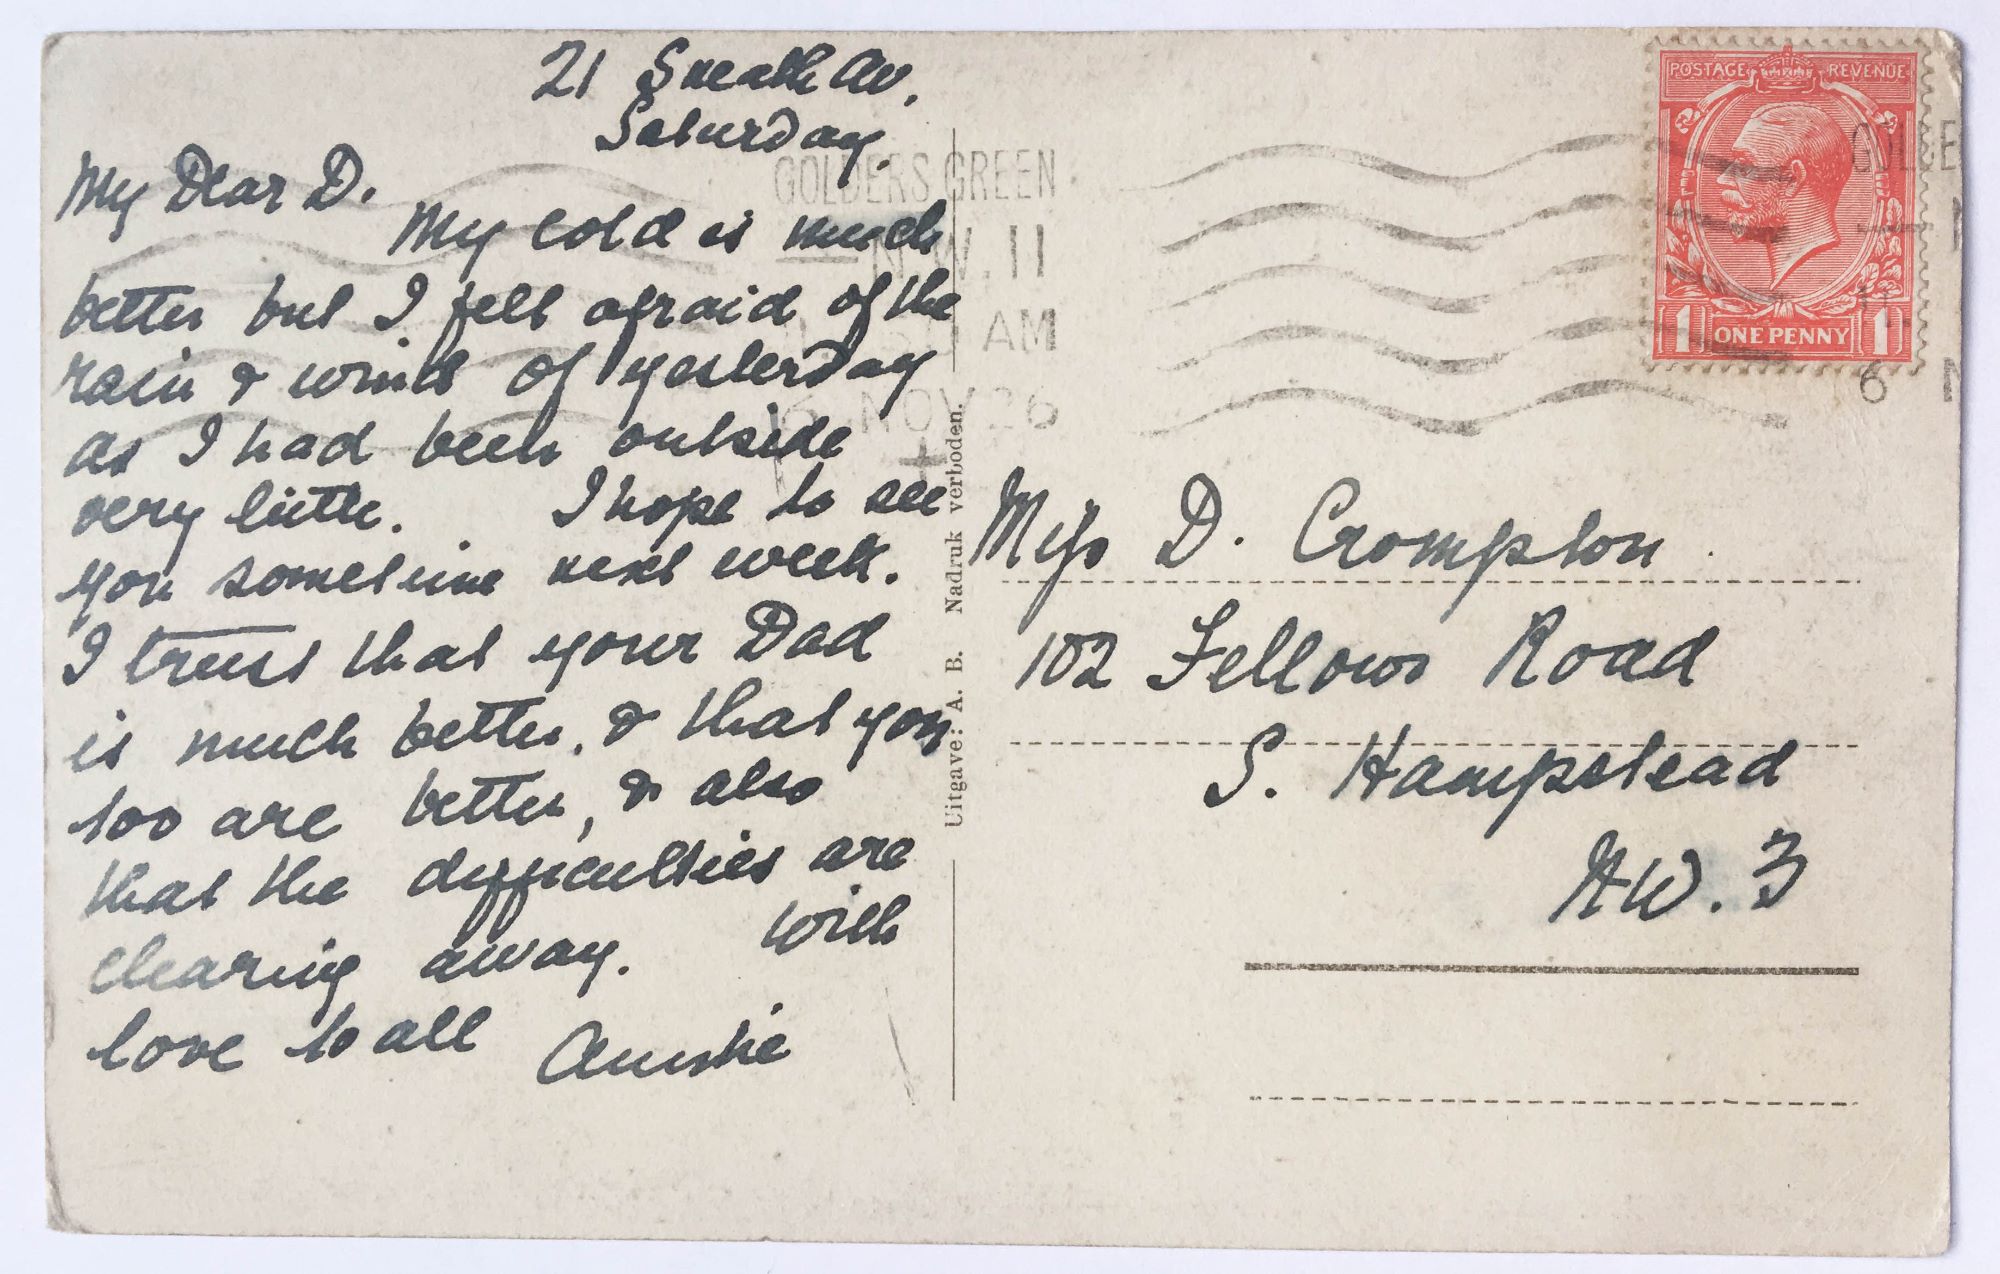 21 Sneath Av,
Saturday.
My Dear D.
My cold is much
better but I felt afraid of the
rain & winds of yesterday
as I had been outside
very little. I hope to see
you sometime next week.
I trust that your Dad
is much better, & that you
too are better, & also
that the difficulties are
clearing away. With
love to all Auntie
Uitgave: A. B. Nadruk verboden.
GOLDERS GREEN
N.W.11
AM
6 NOV 26
POSTAGE REVENUE
1 ONE PENNY 1
6
Miss D. Crompton
102 Fellows Road
S. Hampstead
NW. 3